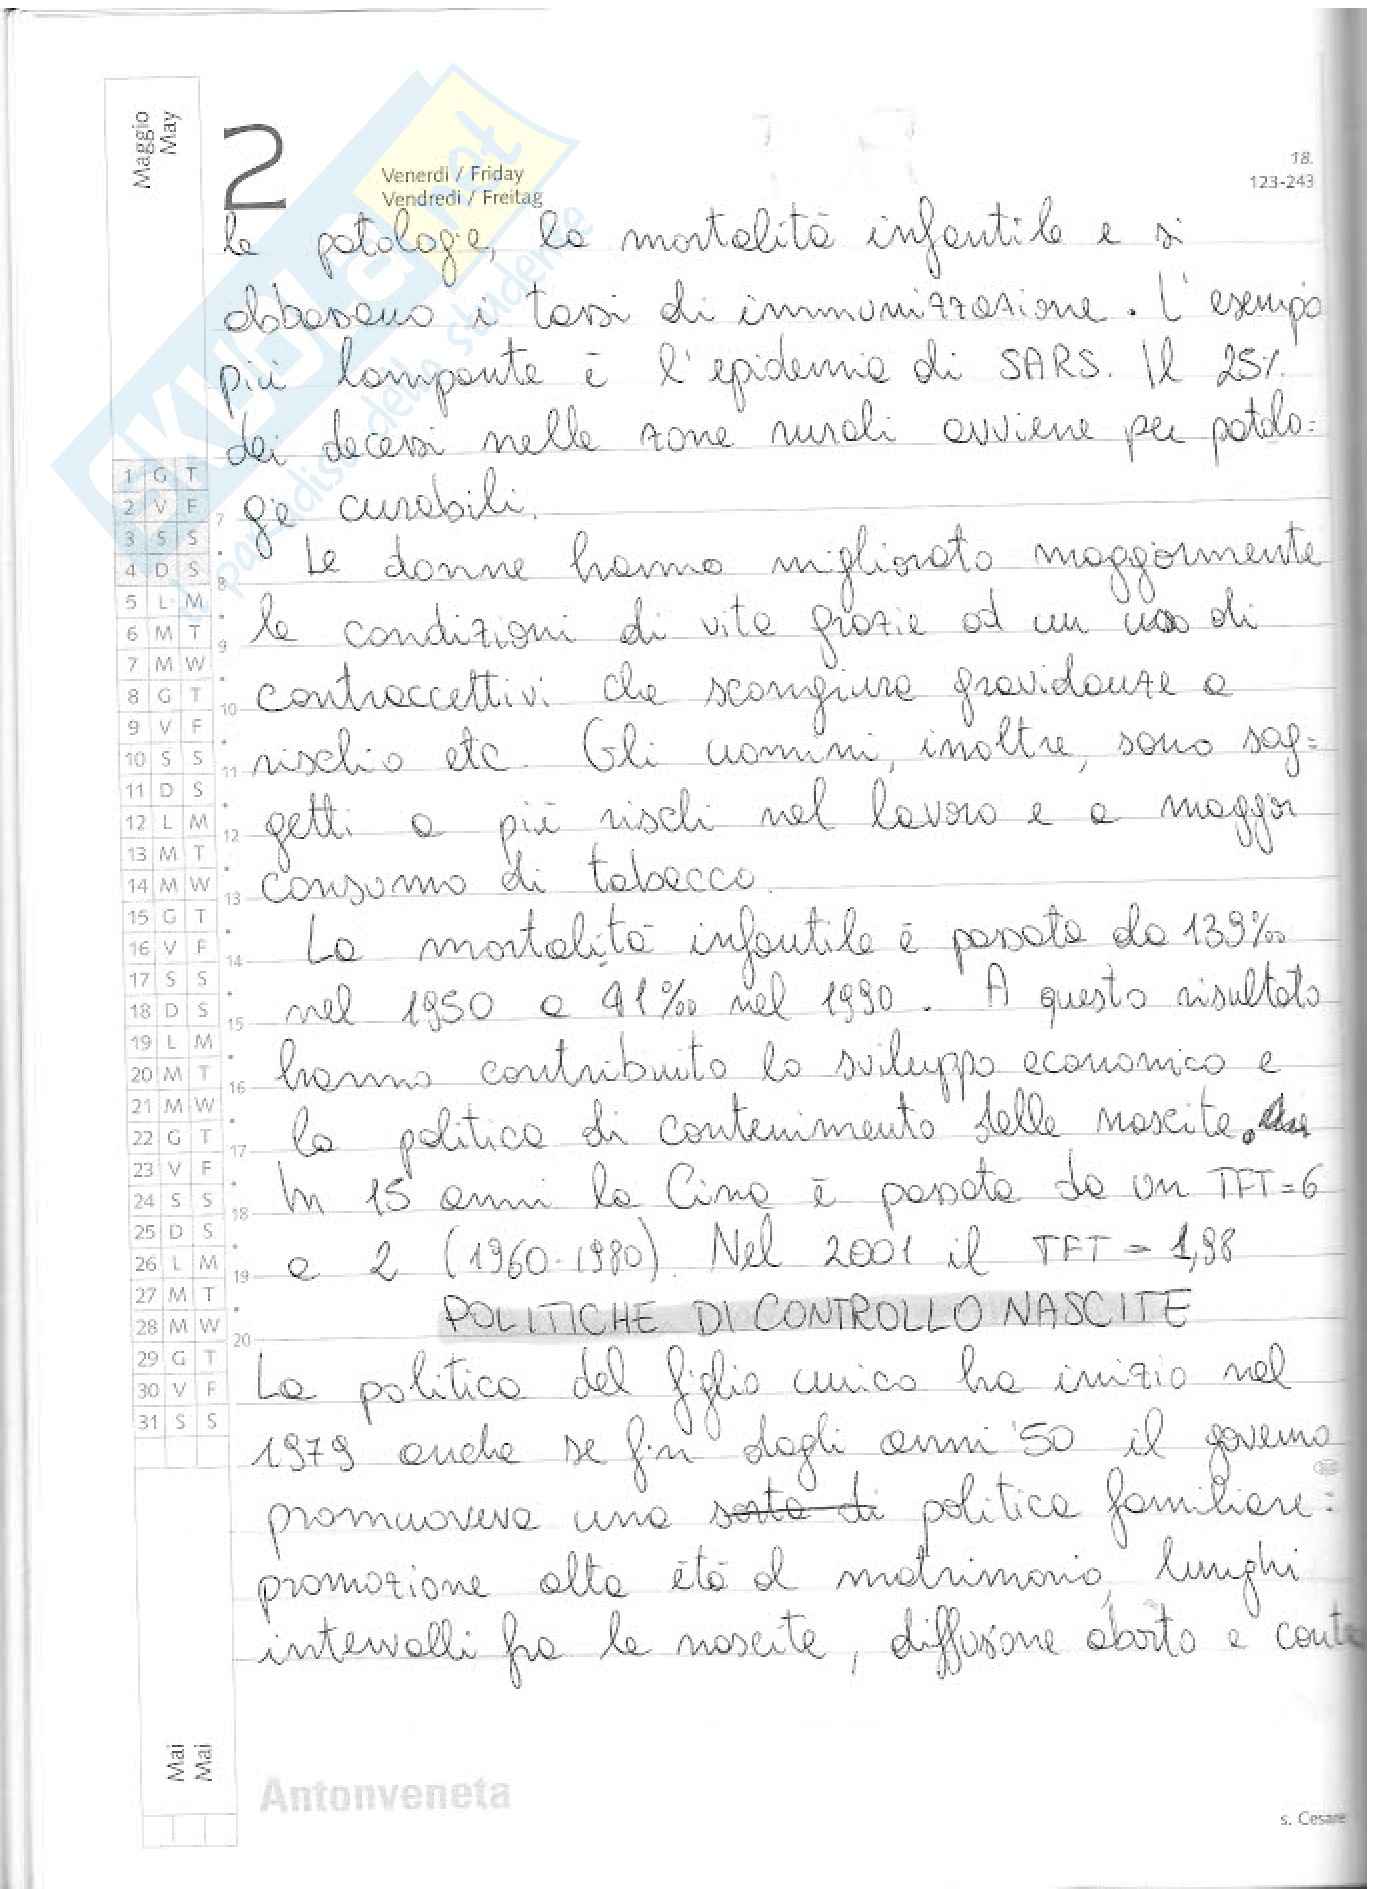 Maggio
May
2
Venerdì / Friday
Vendredi / Freitag
18.
123-243
SKUOLA.net
il paradiso dello studente
le patologie, la mortalità infantile e si
abbassano i tassi di immunizzazione. L'esempio
più lampante è l'epidemia di SARS. Il 25%
dei decessi nelle zone rurali avviene per patolo=
gie curabili.
Le donne hanno migliorato maggiormente
le condizioni di vita grazie ad un uso di
contraccettivi che scongiura gravidanze a
rischio etc. Gli uomini, inoltre, sono sog=
getti a più rischi nel lavoro e a maggior
consumo di tabacco.
La mortalità infantile è passata da 139‰
nel 1950 a 41‰ nel 1990. A questo risultato
hanno contribuito lo sviluppo economico e
la politica di contenimento delle nascite.
In 15 anni la Cina è passata da un TFT=6
a 2 (1960-1980). Nel 2001 il TFT = 1,98
POLITICHE DI CONTROLLO NASCITE
La politica del figlio unico ha inizio nel
1979 anche se fin dagli anni '50 il governo
promuoveva una sorta di politica familiare:
promozione alta età al matrimonio, lunghi
intervalli fra le nascite, diffusione aborto e contra
1 G T
2 V F
3 S S
4 D S
5 L M
6 M T
7 M W
8 G T
9 V F
10 S S
11 D S
12 L M
13 M T
14 M W
15 G T
16 V F
17 S S
18 D S
19 L M
20 M T
21 M W
22 G T
23 V F
24 S S
25 D S
26 L M
27 M T
28 M W
29 G T
30 V F
31 S S
7
8
9
10
11
12
13
14
15
16
17
18
19
20
Mai
Mai
Antonveneta
s. Cesare